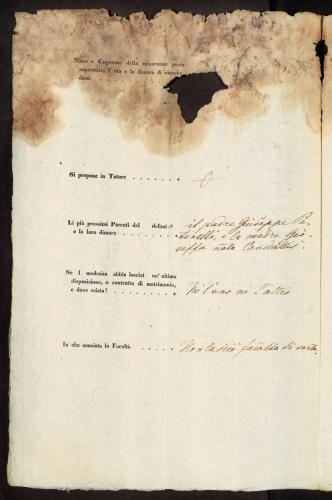 Nome e Cognome della minorenne prole
superstite, l' età e la dimora di ciasche-
duno . . . . .
Si propone in Tutore . . . . . . .
Li più prossimi Parenti del defonto il padre Giuseppe
e la loro dimora . . . . . . . e la madre Gio-
seffa nata
Se I medesimo abbia lasciat un' ultima
disposizione, o contratto di matrimonio, Ne l'uno ne l'altro
e dove esista? . . . . . . . .
In che consista la Facoltà . . . . . Non lasciò facoltà di sorta